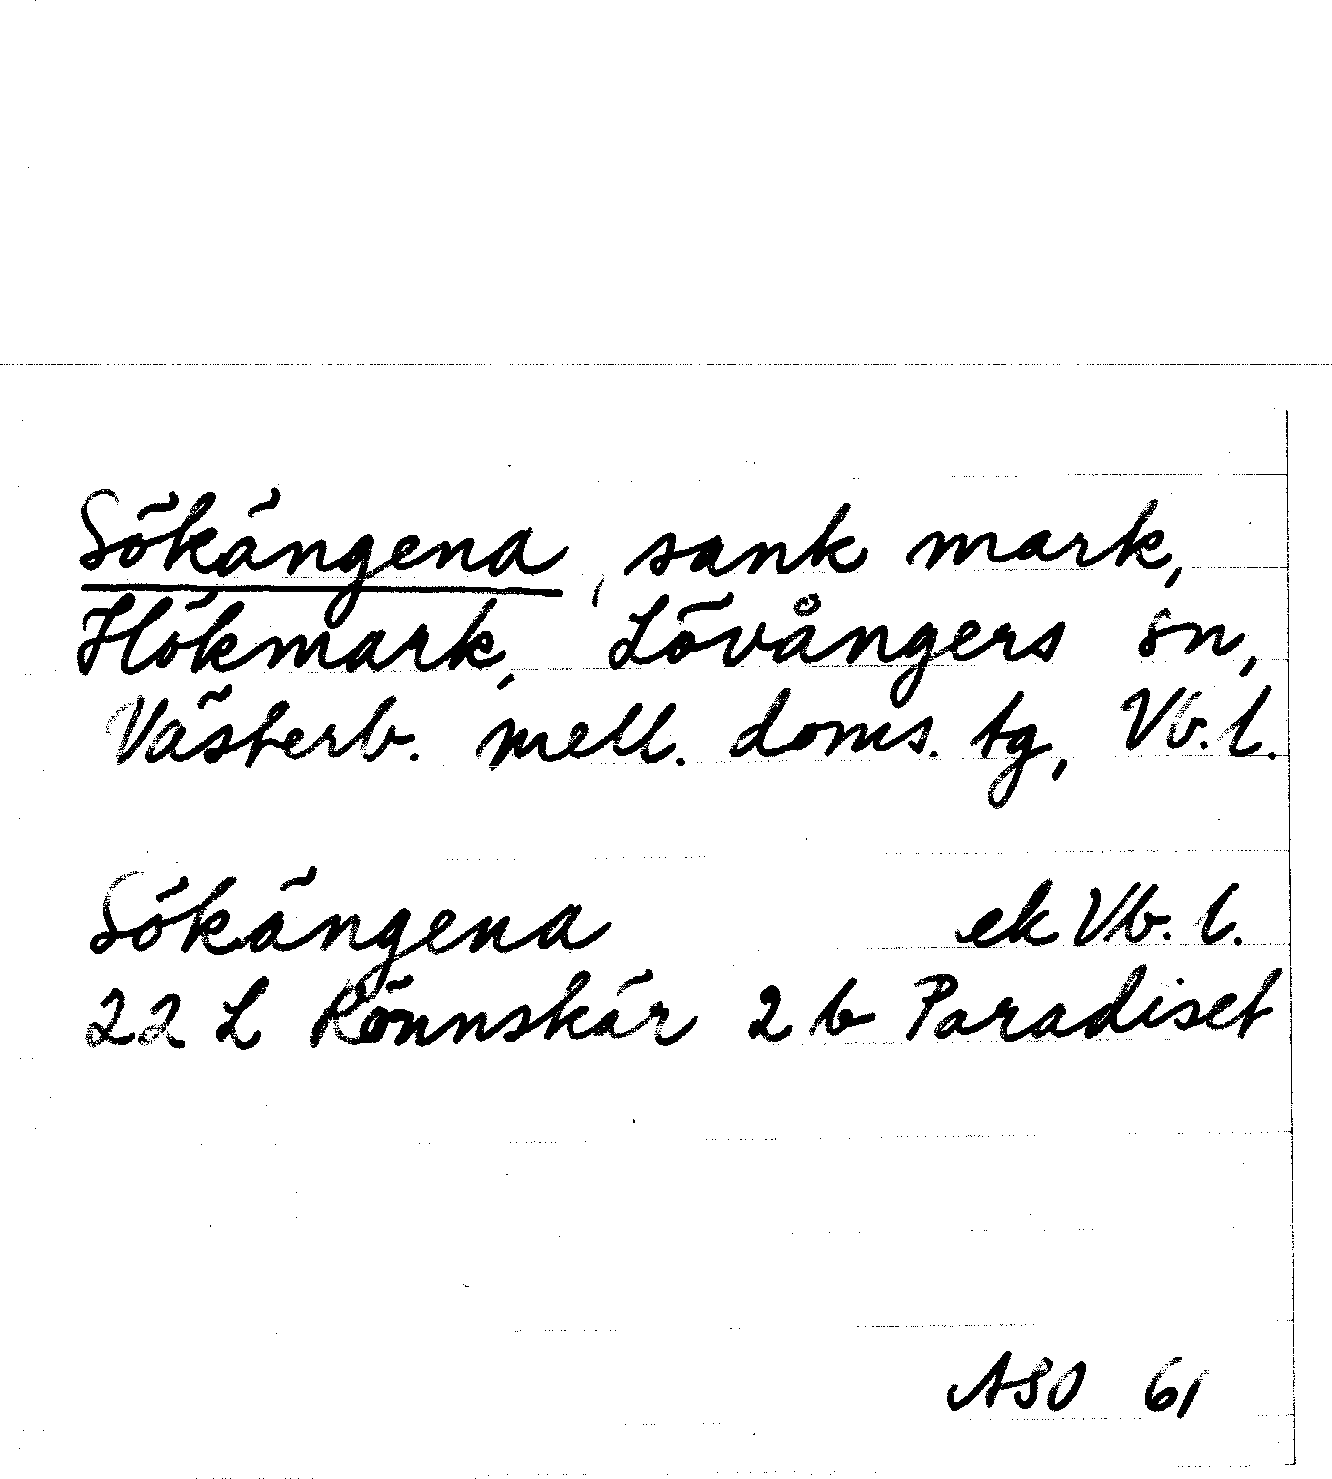 Sökängena, sank mark,
Hökmark, Lövångers sn,
Västerb. mell. doms. tg, Vb. l.
Sökängena ek Vb. l.
22 L Rönnskär 2 b Paradiset
ASO 61